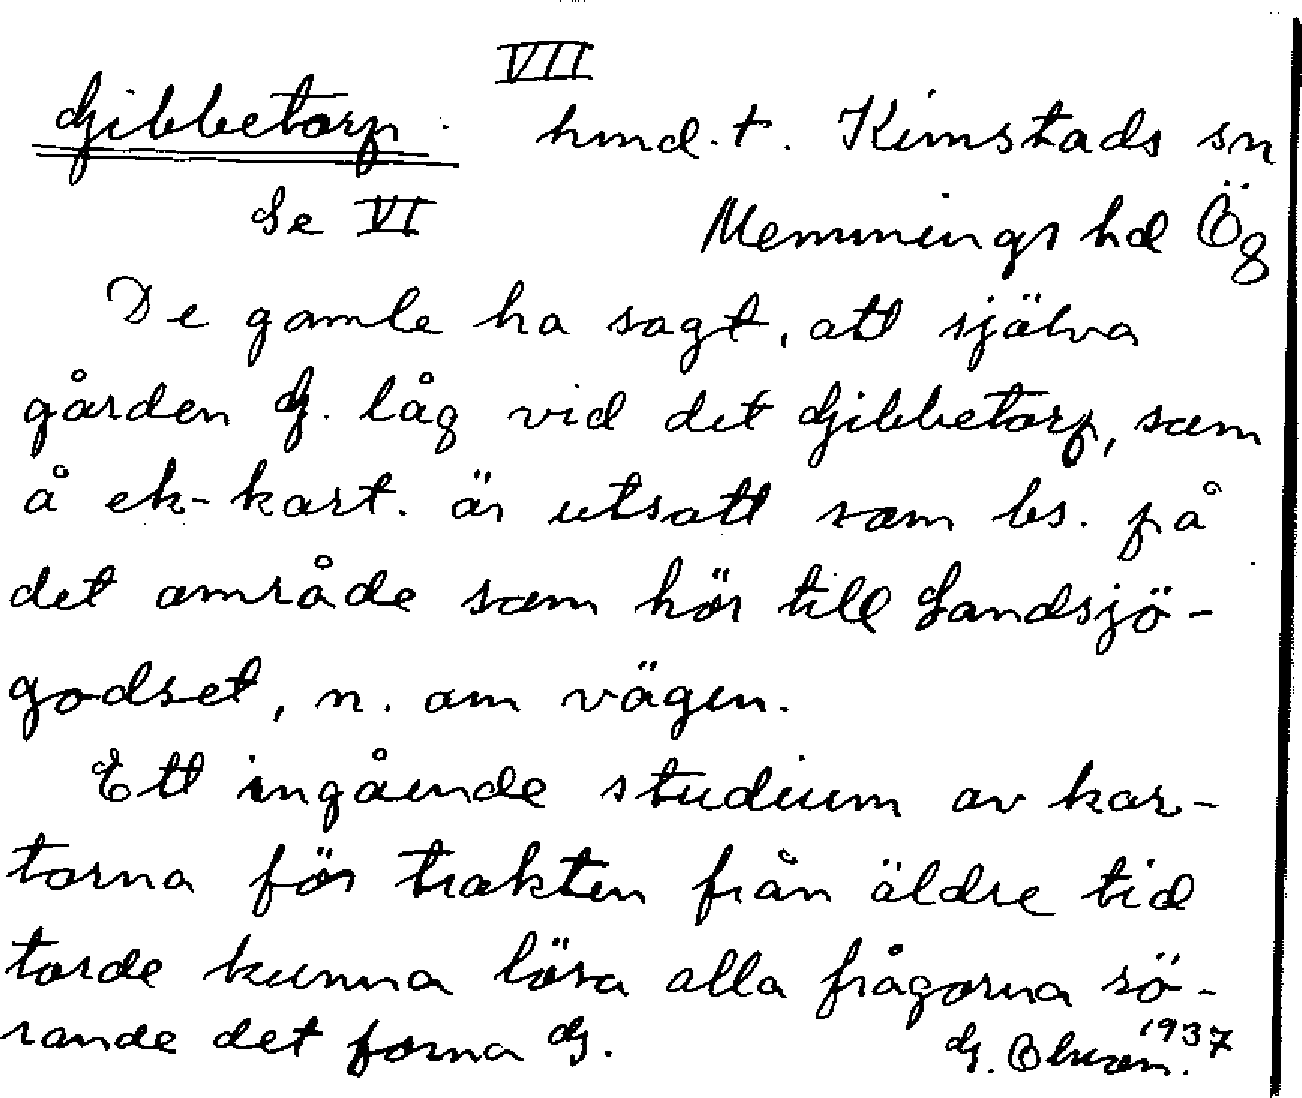 VII
Gibbetorp. hmd. t. Kimstads sn
Se VI Memmings hd Ög
De gamle ha sagt, att själva
gården G. låg vid det Gibbetorp, som
å ek-kart. är utsatt som bs. på
det område som hör till Landsjö-
godset, n. om vägen.
Ett ingående studium av kar-
torna för trakten från äldre tid
torde kunna lösa alla frågorna rö-
rande det forna G.
G. Olsson. 1937